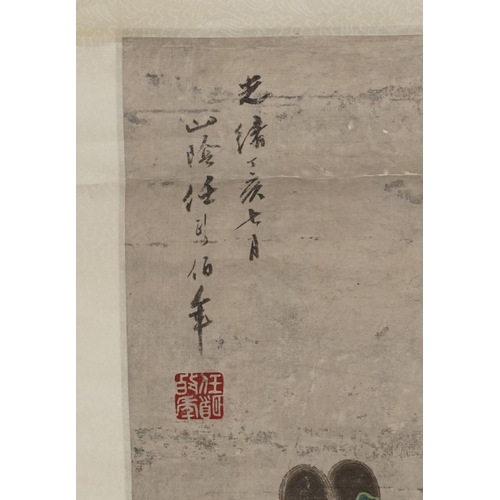 光緒丁亥七月
山陰任頤伯年
任頤